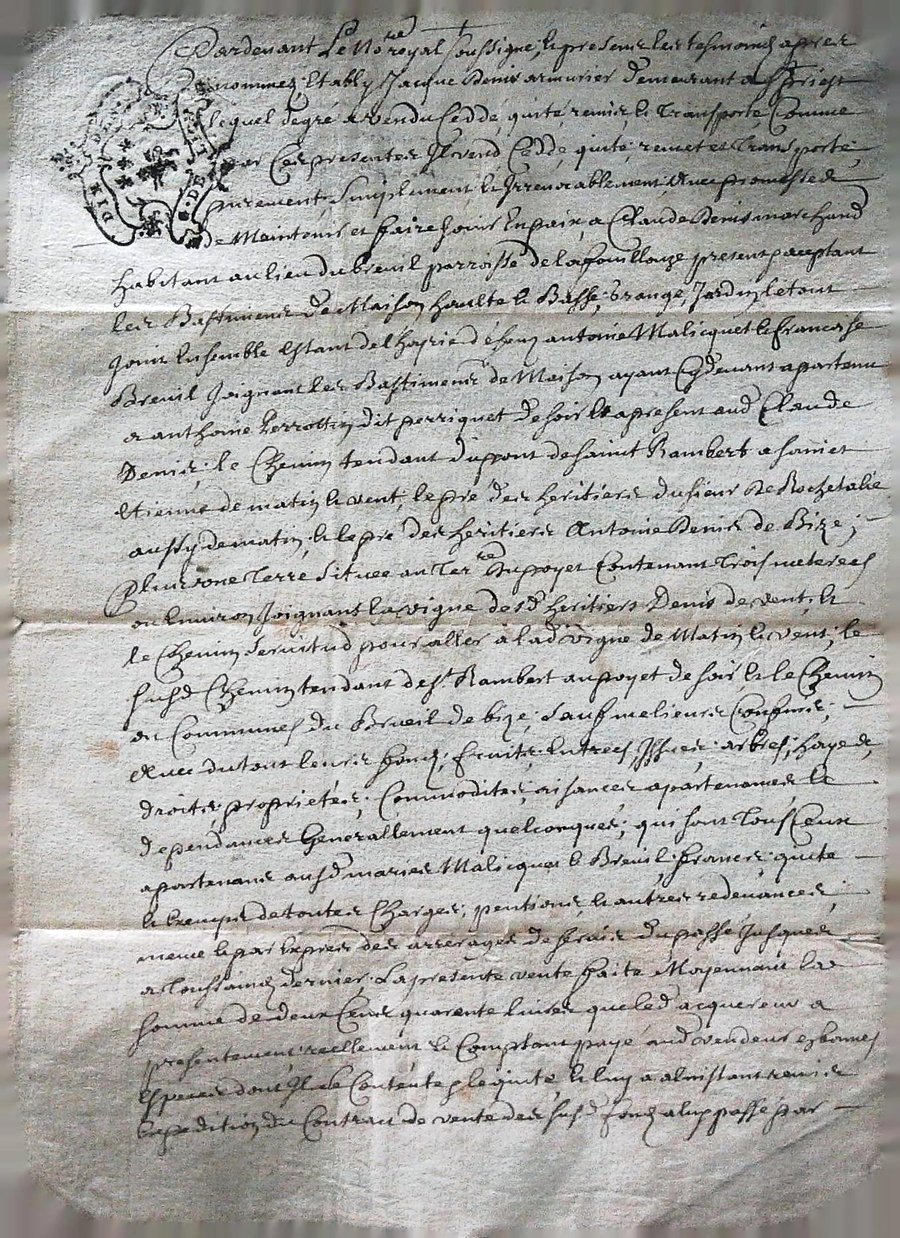 Pardevant Le No.re royal Soussigne, et presens les tesmoins apres
nommez, Estably Jacque Denis armurier demeurant a St Priest
lequel degré a vendu Ceddé, quité remis, et Transporté, Comme
par Ces presentes Il vend Cedde, quite, remet et Transporte,
purement, Simplement et Irrevocablement Avec promesse de
de Maintenir et faire Jouir En paix, a Claude Denis marchand
habitant au lieu du breuil parroisse de la fouillouze present, et aceptant
les Bastiments de Maison haulte et Basse, Grange, Jardin, le tout
Joint Ensemble Estant de antoine Malicquet le france le
Breuil Joignant les Bastiments de Maison ayant Cy devant apartenu
a anthoine perrottin dit perriquet de soir Et a present aud Claude
Denis; le Chemin tendant du pont de saint Rambert a saint
Etienne de matin et vent, le pré des heritiers du sieur De Rochetalié
aussy de matin, et le pré des heritiers Antoine Denis de Bize;
Plus une Terre Situee au Ter.re du poyet Contenant Trois meterees
ou Environ Joignant la vigne desd. heritiers Denis de vent, et
le Chemin servitud pour aller à lad vigne de Matin et vent; le
susd Chemin tendant de St. Rambert au poyet de soir, et le Chemin
ou Communes du Breuil de bize; Sauf melieurs Confins;
Avec du tout leurs fonds, fruits, Entrees, Issues, arbres, hayes,
droits, proprietés, Commodites, aisances apartenances et
dependances Generallement quelconques; qui sont Tous Ceux
apartenans ausd maries Malicquet et Breuil, francs quite
et Exemps de toutes Charges, pentions, et autres redevances;
meme et par Expres des arrerages de servis du passé Jusques
a Toussaincts dernier. La presente vente faite Moyennant la
somme de deux Cens quarente livres que led acquereur a
presentement reellement et Comptant payé aud vendeur en bonnes
Especes dont Il Se Contente et le quite, et luy a a linstant remis
Expedition du Contrat de vente des susd. fonds a luy passé par
DIX DE